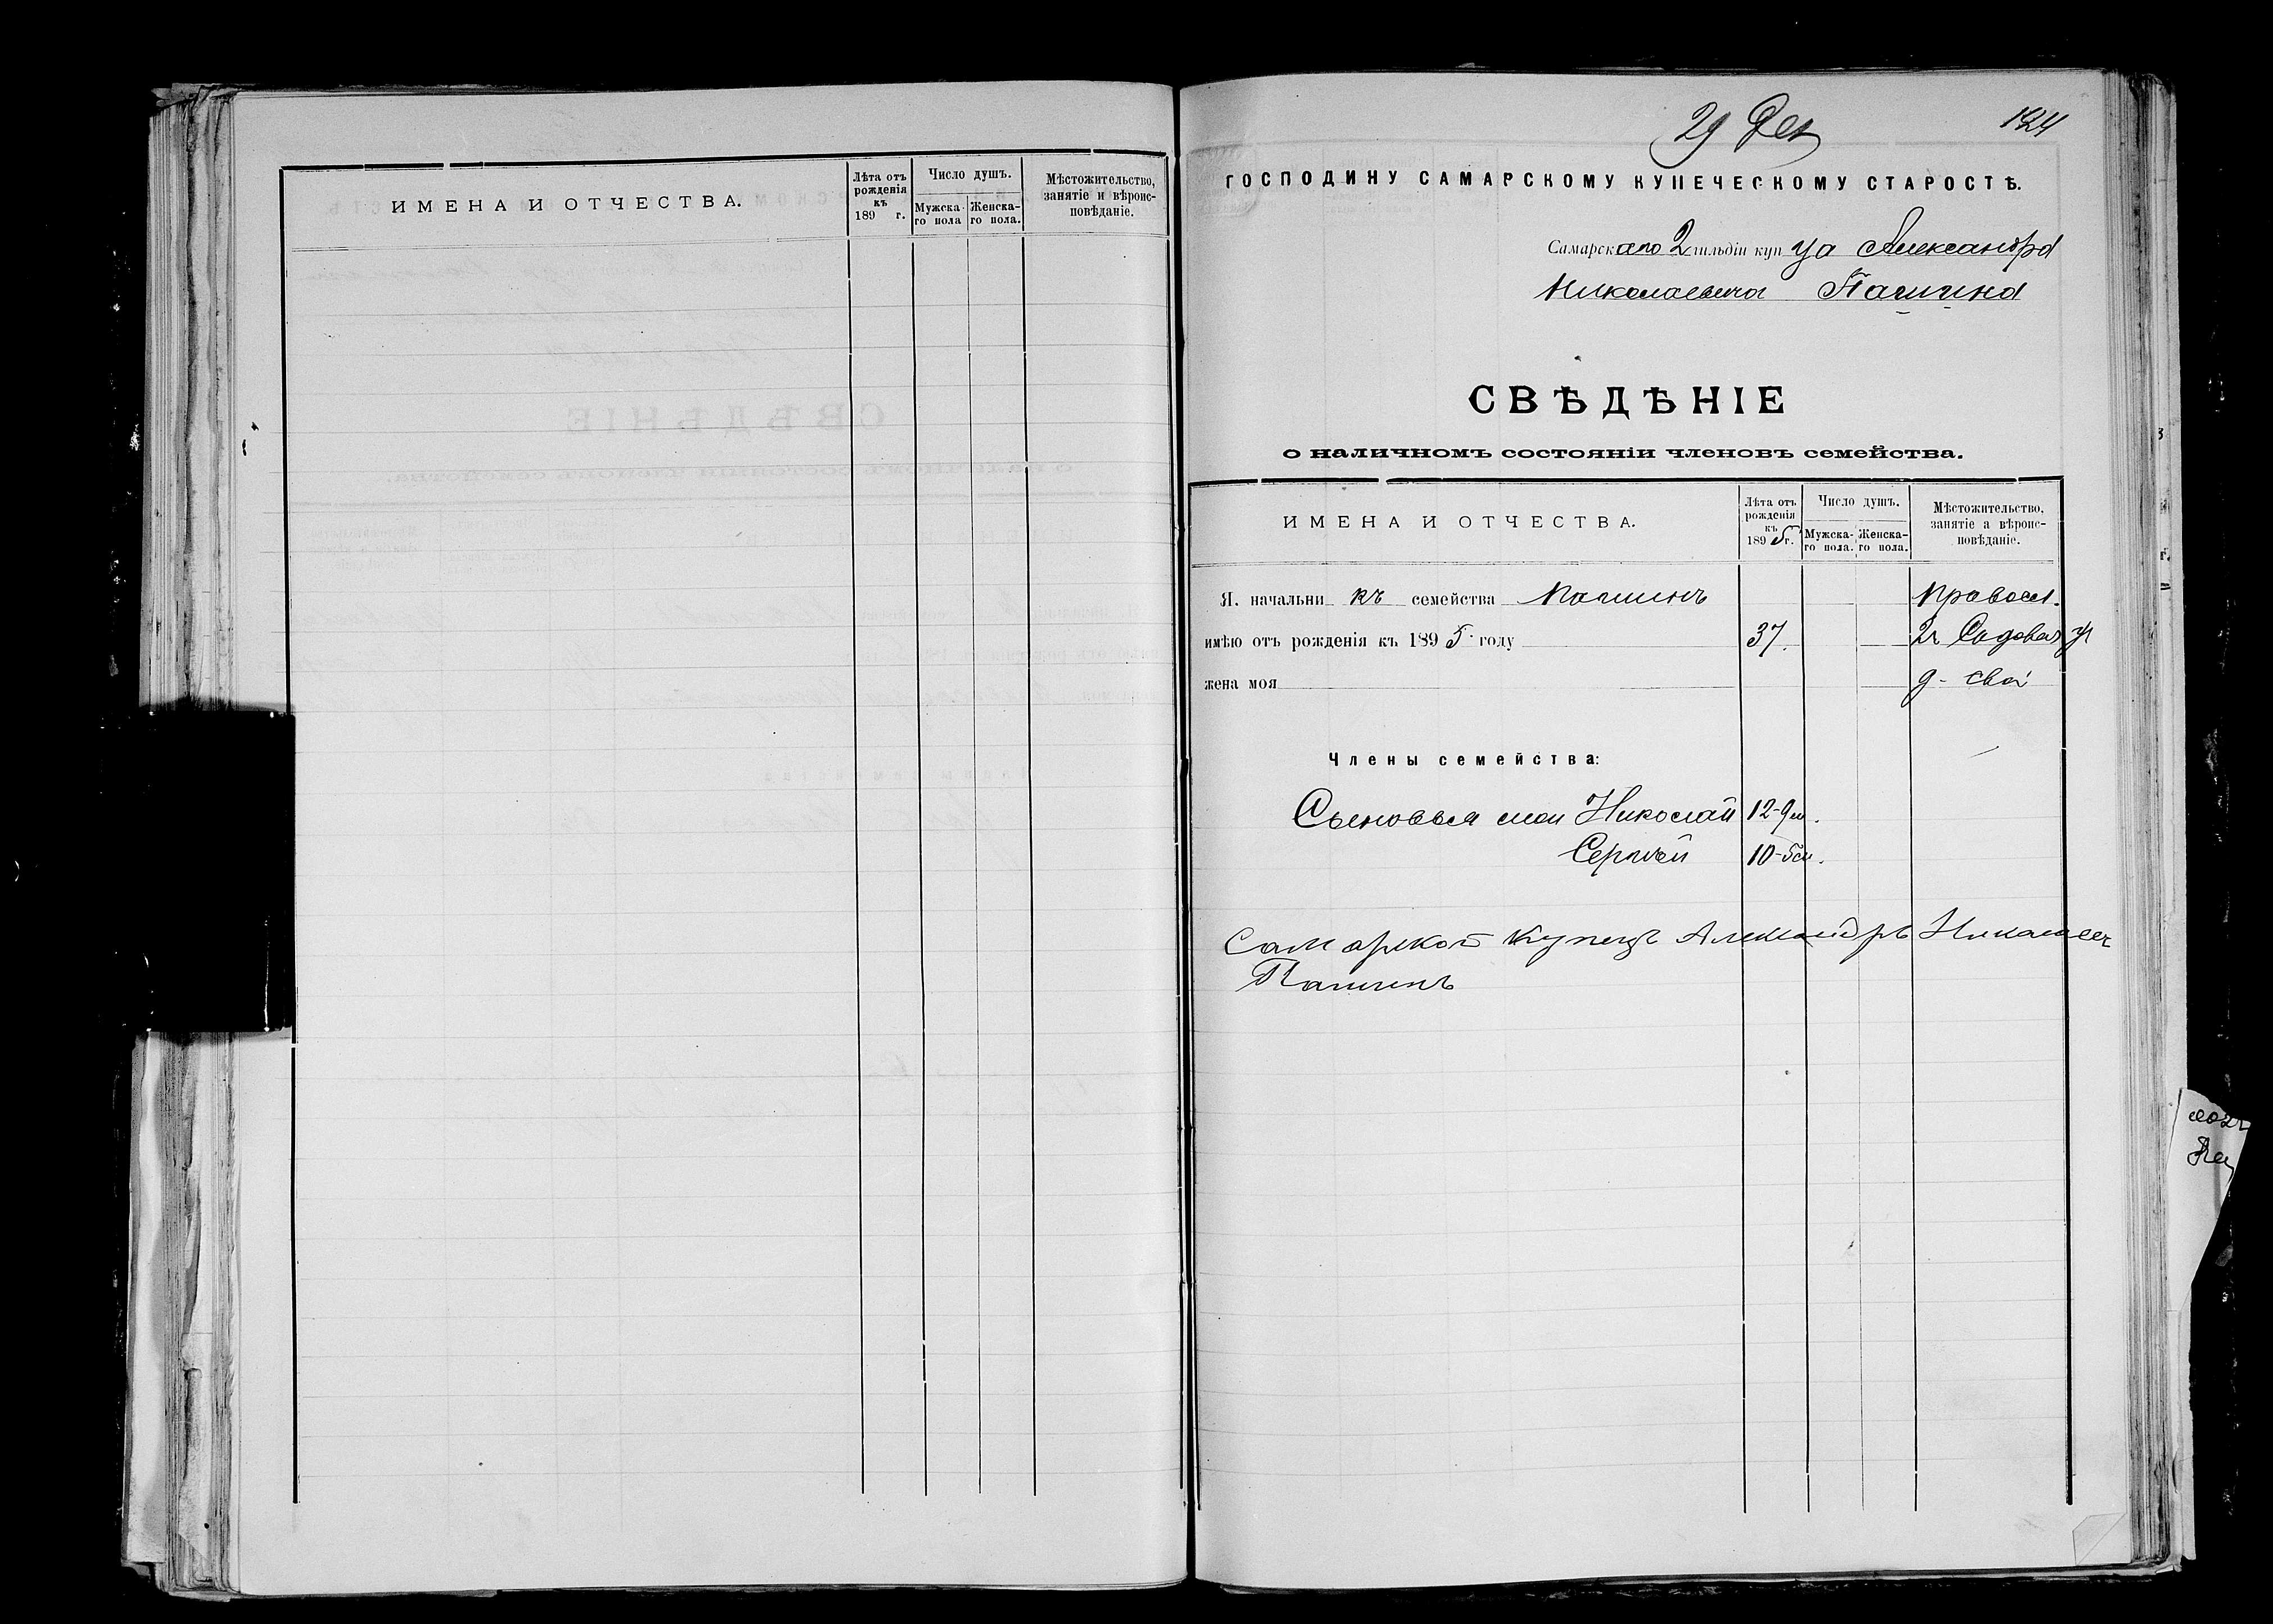 ИМЕНА И ОТЧЕСТВА.
Лѣта отъ рожденія къ 189 г.
Число душъ.
Мужска-го пола
Женска-го пола.
Мѣстожительство, занятіе и вѣроис-повѣданіе.
29 Дек
124
ГОСПОДИНУ САМАРСКОМУ КУПЕЧЕСКОМУ СТАРОСТѢ.
Самарскаго 2 гильдіи купца Александра
Николаевича Пашина
СВѢДѢНІЕ
о наличномъ состояніи членовъ семейства.
ИМЕНА И ОТЧЕСТВА.
Лѣта отъ рожденія къ 1895 г.
Число душъ.
Мужска-го пола.
Женска-го пола.
Мѣстожительство, занятіе а вѣроис-повѣданіе.
Я. начальникъ семейства Пашинъ Правосл.
имѣю отъ рожденія къ 1895 году 37. 2ч Садовая ул
жена моя д. свой
Члены семейства:
Сыновья мои Николай 12-9м.
Сергѣй 10-5м.
Самарской Купецъ Александръ Николаев
Пашинъ